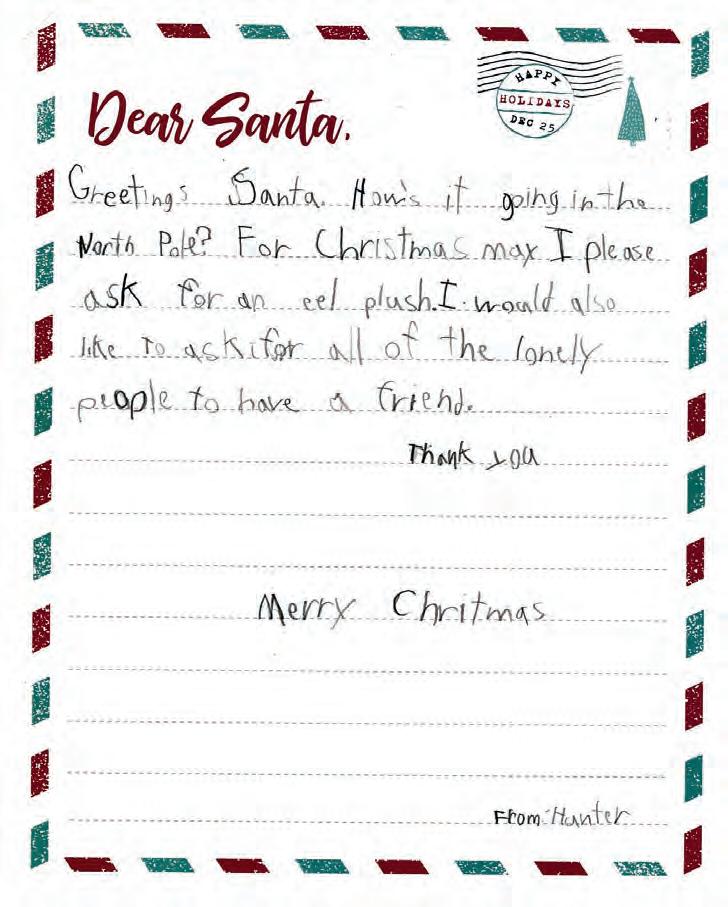 HAPPY
HOLIDAYS
DEC 25
Dear Santa,
Greetings Santa. How's it going in the
North Pole? For Christmas may I please
ask for an eel plush. I would also
like to ask for all of the lonely
people to have a friend.
Thank you
Merry Chritmas
From: Hunter